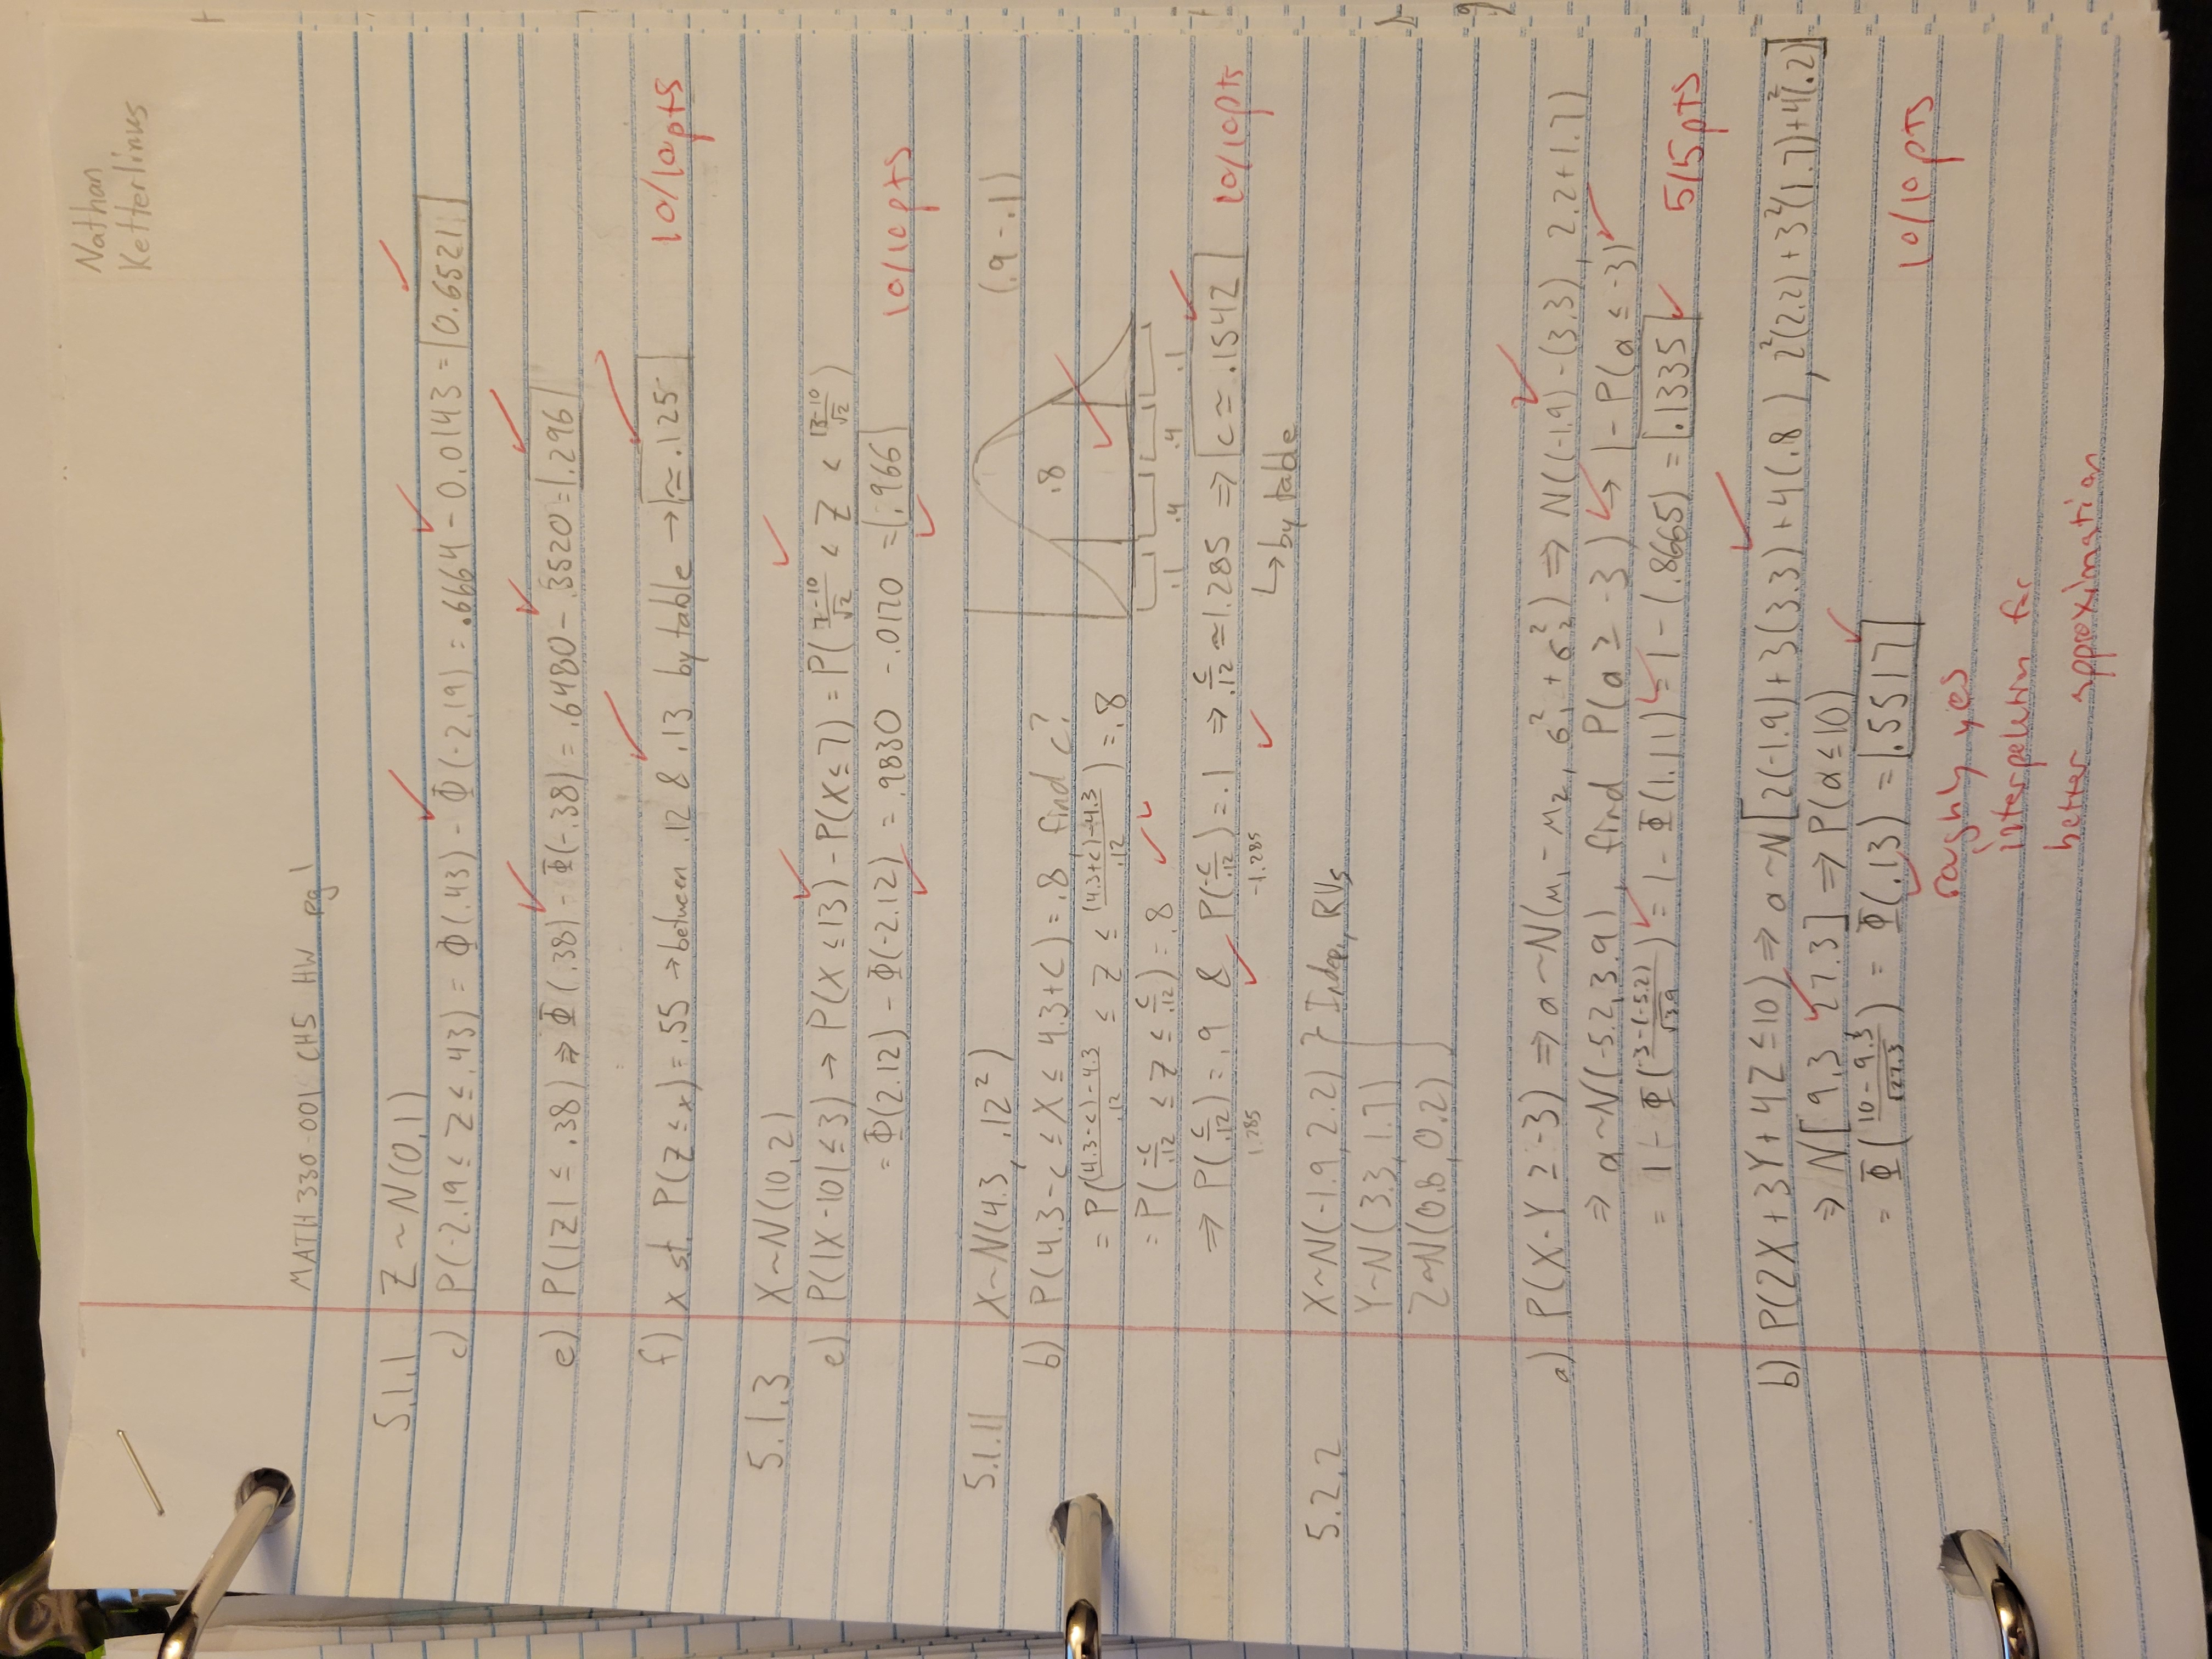 Nathan
Ketterlinus
MATH 330-001 CH5 HW pg 1
5.1.1 Z ~ N(0,1)
c) P(-2.19 ≤ Z ≤ .43) = Φ(.43) - Φ(-2.19) = .6664 - 0.0143 = 0.6521
e) P(|Z| ≤ .38) ⇒ Φ(.38) - Φ(-.38) = .6480 - .3520 = .296
f) x st. P(Z ≤ x) = .55 → between .12 & .13 by table → ≃ .125
10/10pts
5.1.3 X~N(10,2)
e) P(|X-10| ≤ 3) → P(X ≤ 13) - P(X ≤ 7) = P(7-10/√2 < Z < 13-10/√2)
= Φ(2.12) - Φ(-2.12) = .9830 - .0170 = .966
10/10pts
5.1.11 X~N(4.3, .12²)
(.9 - .1)
b) P(4.3-c ≤ X ≤ 4.3+c) = .8, find c?
.8
= P((4.3-c)-4.3/.12 ≤ Z ≤ (4.3+c)-4.3/.12) = .8
= P(-c/.12 ≤ Z ≤ c/.12) = .8
.1 .4 .4 .1
⇒ P(c/.12) = .9 & P(-c/.12) = .1 ⇒ c/.12 ≃ 1.285 ⇒ c ≃ .1542
10/10pts
1.285 -1.285
↳ by table
5.2.2 X~N(-1.9, 2.2) } Indep, RVs
Y~N(3.3, 1.7)
Z~N(0.8, 0.2)
a) P(X-Y ≥ -3) ⇒ a~N(μ₁ - μ₂, σ₁² + σ₂²) ⇒ N((-1.9)-(3.3), 2.2+1.7)
⇒ a~N(-5.2, 3.9), find P(a ≥ -3) → 1-P(a ≤ -3)
= 1 - Φ(-3-(-5.2)/√3.9) = 1 - Φ(1.11) = 1 - (.8665) = .1335
5/5pts
b) P(2X+3Y+4Z ≤ 10) ⇒ a~N[2(-1.9)+3(3.3)+4(.8), 2²(2.2)+3²(1.7)+4²(.2)]
⇒ N[9.3, 27.3] ⇒ P(a ≤ 10)
= Φ(10-9.3/√27.3) = Φ(.13) = .5517
10/10pts
roughly yes
interpolation for
better approximation